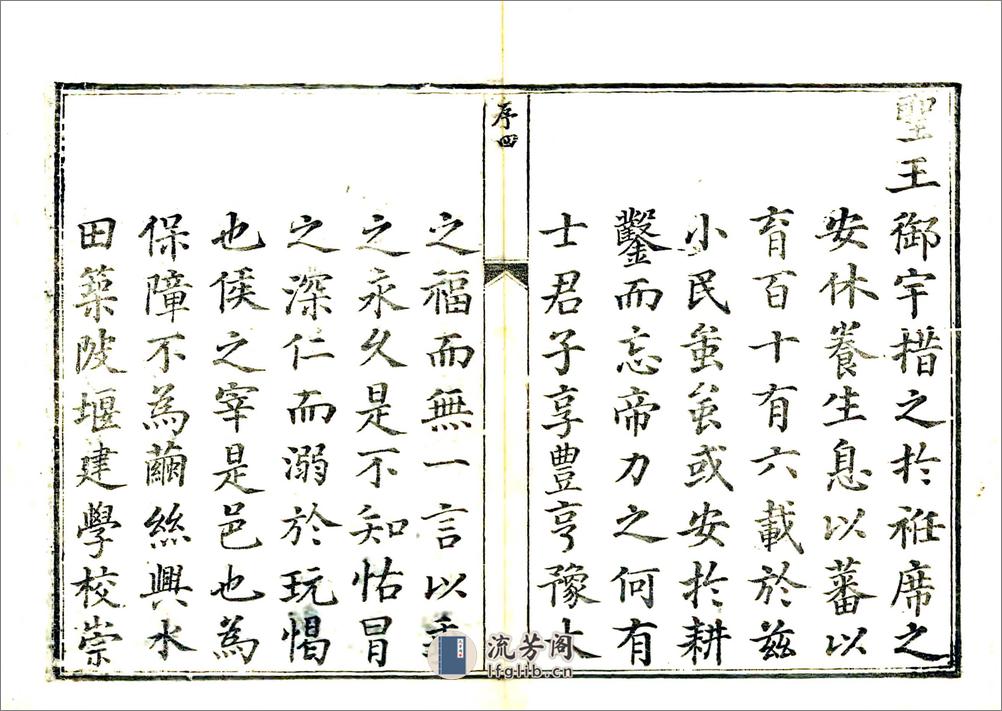 聖王御宇措之於袵席之
安休養生息以蕃以
育百十有六載於茲
小民蚩蚩或安於耕
鑿而忘帝力之何有
士君子享豊亨豫大
序四
之福而無一言以垂
之永久是不知怙冒
之深仁而溺於玩愒
也侯之宰是邑也為
保障不為繭絲興水
田築陂堰建學校崇
流芳阁
lfglib.cn